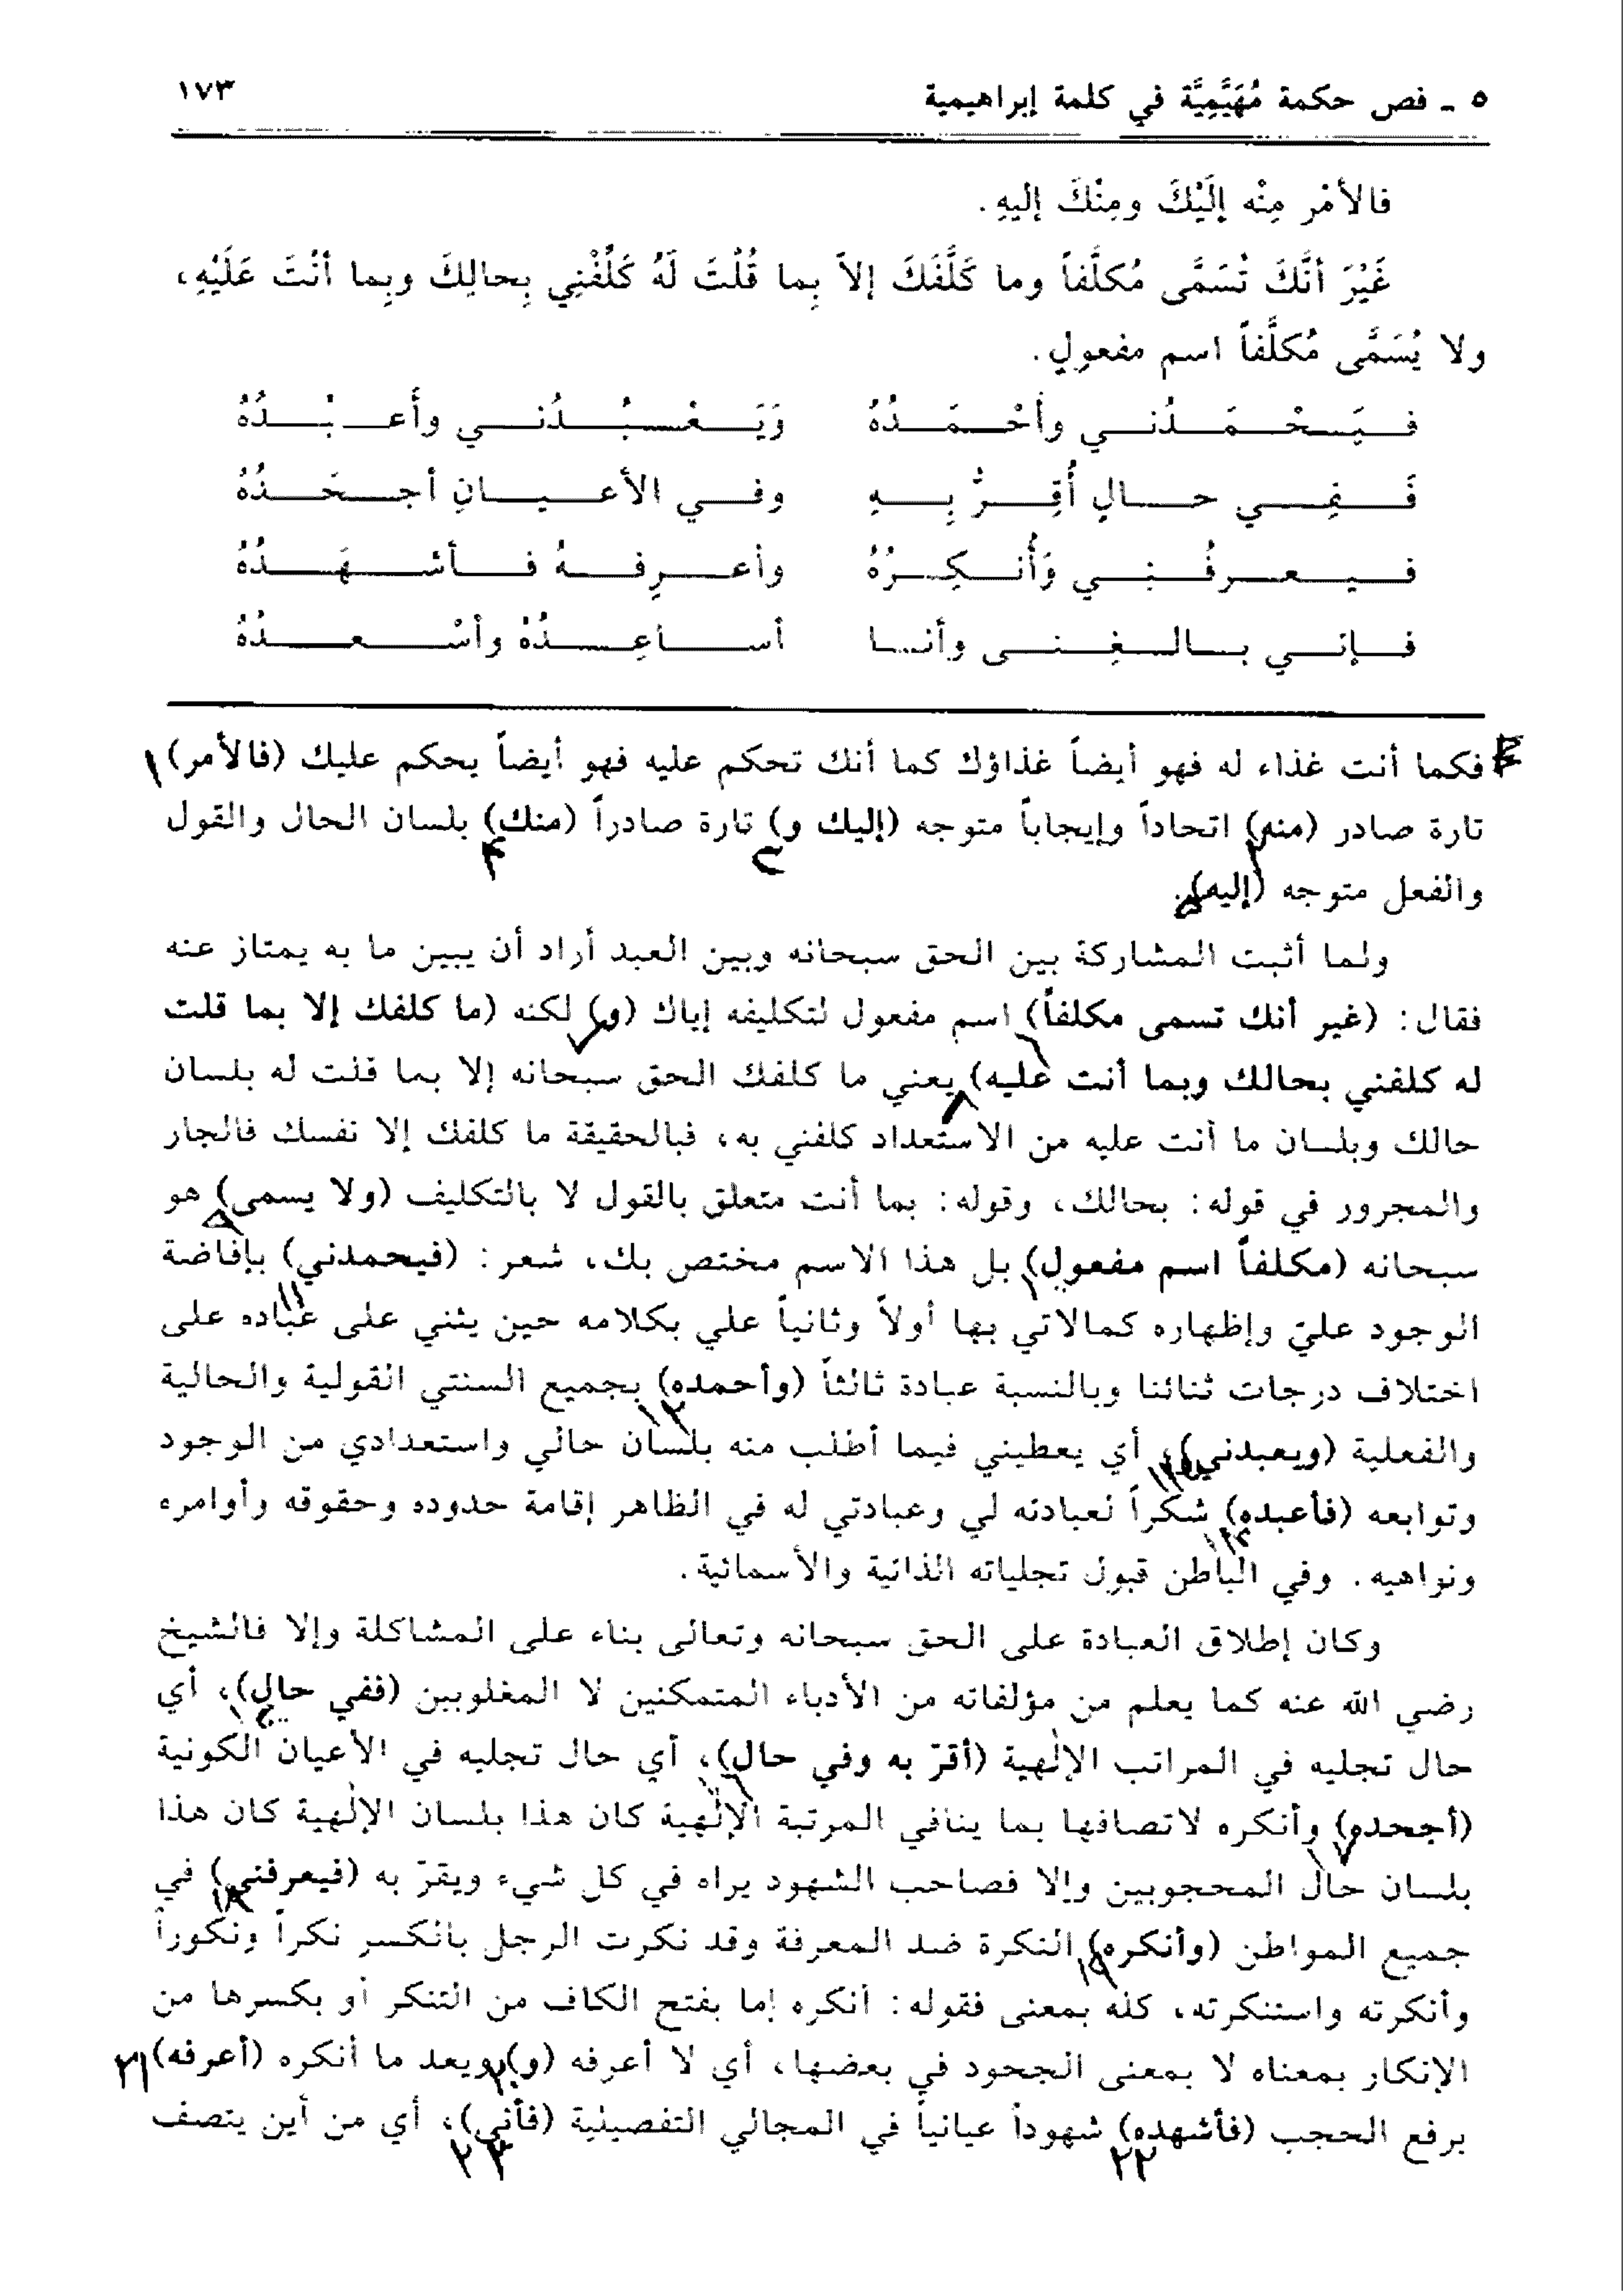 ٥ ـ فص حكمة مُهَيَّمِيَّة في كلمة إبراهيمية ١٧٣
فالأمْر مِنْه إلَيْكَ ومِنْكَ إليهِ.
غَيْرَ أنَّكَ تُسَمَّى مُكلَّفاً وما كَلَّفَكَ إلاّ بِما قُلْتَ لَهُ كَلِّفْنِي بِحالِكَ وبِما أنْتَ عَلَيْهِ،
ولا يُسَمَّى مُكلَّفاً اسم مفعولٍ.
فيَحْمَدُني وأحْمَدُهُ وَيَعْبُدُني وأعبْدُهُ
فَفِي حالٍ أُقِرُّ بِهِ وفي الأعيانِ أجحَدُهُ
فيعرفُنِي وَأُنكِرُهُ وأعرِفهُ فأشهَدُهُ
فإني بالغِنى وأنا أساعِدُهُ وأسْعدُهُ
فكما أنت غذاء له فهو أيضاً غذاؤك كما أنك تحكم عليه فهو أيضاً يحكم عليك (فالأمر) ١
تارة صادر (منه) اتحاداً وإيجاباً متوجه (إليك و) تارة صادراً (منك) بلسان الحال والقول
والفعل متوجه (إليه).
ولما أثبت المشاركة بين الحق سبحانه وبين العبد أراد أن يبين ما به يمتاز عنه
فقال: (غير أنك تسمى مكلفاً) اسم مفعول لتكليفه إياك (و) لكنه (ما كلفك إلا بما قلت
له كلفني بحالك وبما أنت عليه) يعني ما كلفك الحق سبحانه إلا بما قلت له بلسان
حالك وبلسان ما أنت عليه من الاستعداد كلفني به، فبالحقيقة ما كلفك إلا نفسك فالجار
والمجرور في قوله: بحالك، وقوله: بما أنت متعلق بالقول لا بالتكليف (ولا يسمى) هو
سبحانه (مكلفاً اسم مفعول) بل هذا الاسم مختص بك، شعر: (فيحمدني) بإفاضة
الوجود عليّ وإظهاره كمالاتي بها أولاً وثانياً علي بكلامه حين يثني على عباده على
اختلاف درجات ثنائنا وبالنسبة عبادة ثالثاً (وأحمده) بجميع السنتي القولية والحالية
والفعلية (ويعبدني)، أي يعطيني فيما أطلب منه بلسان حالي واستعدادي من الوجود
وتوابعه (فأعبده) شكراً لعبادته لي وعبادتي له في الظاهر إقامة حدوده وحقوقه وأوامره
ونواهيه. وفي الباطن قبول تجلياته الذاتية والأسمائية.
وكان إطلاق العبادة على الحق سبحانه وتعالى بناء على المشاكلة وإلا فالشيخ
رضي الله عنه كما يعلم من مؤلفاته من الأدباء المتمكنين لا المغلوبين (ففي حال)، أي
حال تجليه في المراتب الإلٰهية (أقرّ به وفي حال)، أي حال تجليه في الأعيان الكونية
(أجحده) وأنكره لاتصافها بما ينافي المرتبة الإلٰهية كان هذا بلسان الإلٰهية كان هذا
بلسان حال المحجوبين وإلا فصاحب الشهود يراه في كل شيء ويقرّ به (فيعرفني) في
جميع المواطن (وأنكره) النكرة ضد المعرفة وقد نكرت الرجل بانكسر نكراً ونكوراً
وأنكرته واستنكرته، كله بمعنى فقوله: أنكره إما بفتح الكاف من التنكر أو بكسرها من
الإنكار بمعناه لا بمعنى الجحود في بعضها، أي لا أعرفه (و) ويعد ما أنكره (أعرفه) ٢١
برفع الحجب (فأشهده) شهوداً عيانياً في المجالي التفصيلية (فأنى)، أي من أين يتصف